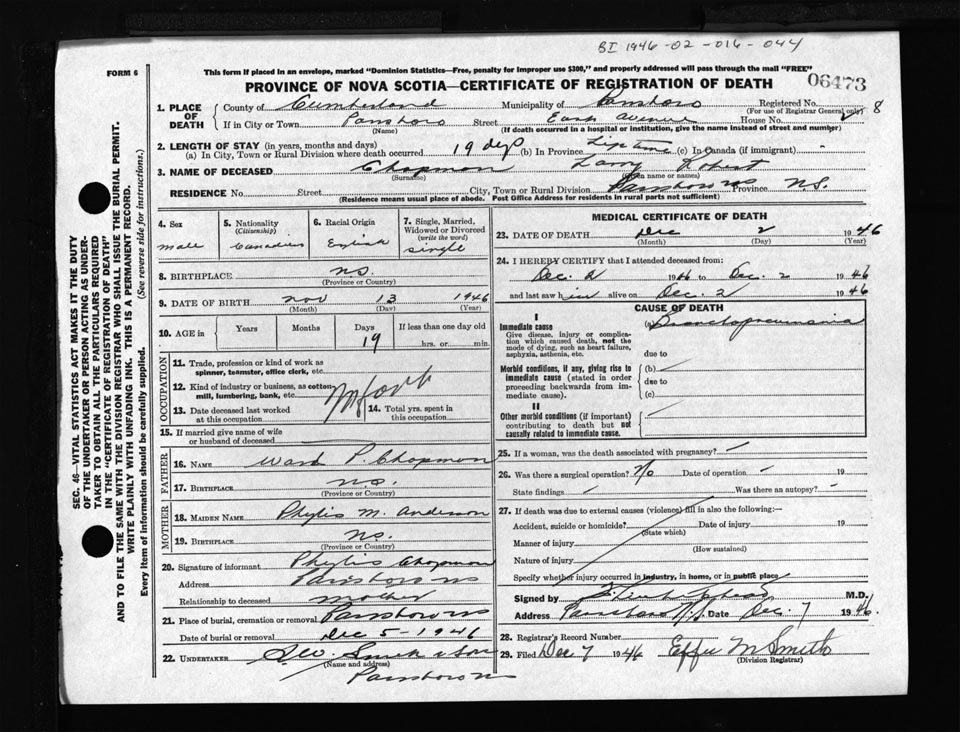 BI 1946-02-016-044
FORM 6
This form if placed in an envelope, marked "Dominion Statistics—Free, penalty for improper use $300," and properly addressed will pass through the mail "FREE"
PROVINCE OF NOVA SCOTIA—CERTIFICATE OF REGISTRATION OF DEATH
06473
1. PLACE OF DEATH
County of Cumberland Municipality of Parrsboro Registered No. 8
(For use of Registrar General only)
If in City or Town Parrsboro Street East Avenue House No.
(Name) (If death occurred in a hospital or institution, give the name instead of street and number)
2. LENGTH OF STAY (in years, months and days)
(a) In City, Town or Rural Division where death occurred 19 dys (b) In Province Life time (c) In Canada (if immigrant) -
3. NAME OF DECEASED Chapman Larry Robert
(Surname) (Given name or names)
RESIDENCE No. Street City, Town or Rural Division Parrsboro NS Province N.S.
(Residence means usual place of abode. Post Office Address for residents in rural parts not sufficient)
4. Sex
male
5. Nationality (Citizenship)
Canadian
6. Racial Origin
English
7. Single, Married, Widowed or Divorced (write the word)
single
8. BIRTHPLACE N.S.
(Province or Country)
9. DATE OF BIRTH Nov 13 1946
(Month) (Day) (Year)
10. AGE in Years Months Days 19 If less than one day old
hrs. or min.
OCCUPATION
11. Trade, profession or kind of work as spinner, teamster, office clerk, etc.
12. Kind of industry or business, as cotton-mill, lumbering, bank, etc.
Infant
13. Date deceased last worked at this occupation
14. Total yrs. spent in this occupation
15. If married give name of wife or husband of deceased
FATHER
16. NAME Ward P. Chapman
17. BIRTHPLACE N.S.
(Province or Country)
MOTHER
18. MAIDEN NAME Phylis M. Anderson
19. BIRTHPLACE N.S.
(Province or Country)
20. Signature of informant Phylis Chapman
Address Parrsboro NS
Relationship to deceased mother
21. Place of burial, cremation or removal Parrsboro NS
Date of burial or removal Dec 5 - 1946
22. UNDERTAKER Smith & Son
(Name and address)
Parrsboro NS
MEDICAL CERTIFICATE OF DEATH
23. DATE OF DEATH Dec 2 1946
(Month) (Day) (Year)
24. I HEREBY CERTIFY that I attended deceased from:
Dec. 2 1946 to Dec. 2 1946
and last saw him alive on Dec. 2 1946
CAUSE OF DEATH
I
Immediate cause
Give disease, injury or complication which caused death, not the mode of dying, such as heart failure, asphyxia, asthenia, etc.
(a) Bronchopneumonia
due to
Morbid conditions, if any, giving rise to immediate cause (stated in order proceeding backwards from immediate cause).
(b)
due to
(c)
II
Other morbid conditions (if important) contributing to death but not causally related to immediate cause.
25. If a woman, was the death associated with pregnancy?
26. Was there a surgical operation? No Date of operation 19
State findings Was there an autopsy?
27. If death was due to external causes (violence) fill in also the following:—
Accident, suicide or homicide? Date of injury 19
(State which)
Manner of injury
(How sustained)
Nature of injury
Specify whether injury occurred in industry, in home, or in public place
Signed by M.D.
Address Parrsboro N.S. Date Dec. 7 1946.
28. Registrar's Record Number
29. Filed Dec 7 1946 Effie M Smith
(Division Registrar)
SEC. 46—VITAL STATISTICS ACT MAKES IT THE DUTY
OF THE UNDERTAKER OR PERSON ACTING AS UNDER-
TAKER TO OBTAIN ALL THE PARTICULARS REQUIRED
IN THE "CERTIFICATE OF REGISTRATION OF DEATH"
AND TO FILE THE SAME WITH THE DIVISION REGISTRAR WHO SHALL ISSUE THE BURIAL PERMIT.
WRITE PLAINLY WITH UNFADING INK. THIS IS A PERMANENT RECORD.
Every item of information should be carefully supplied. (See reverse side for instructions.)